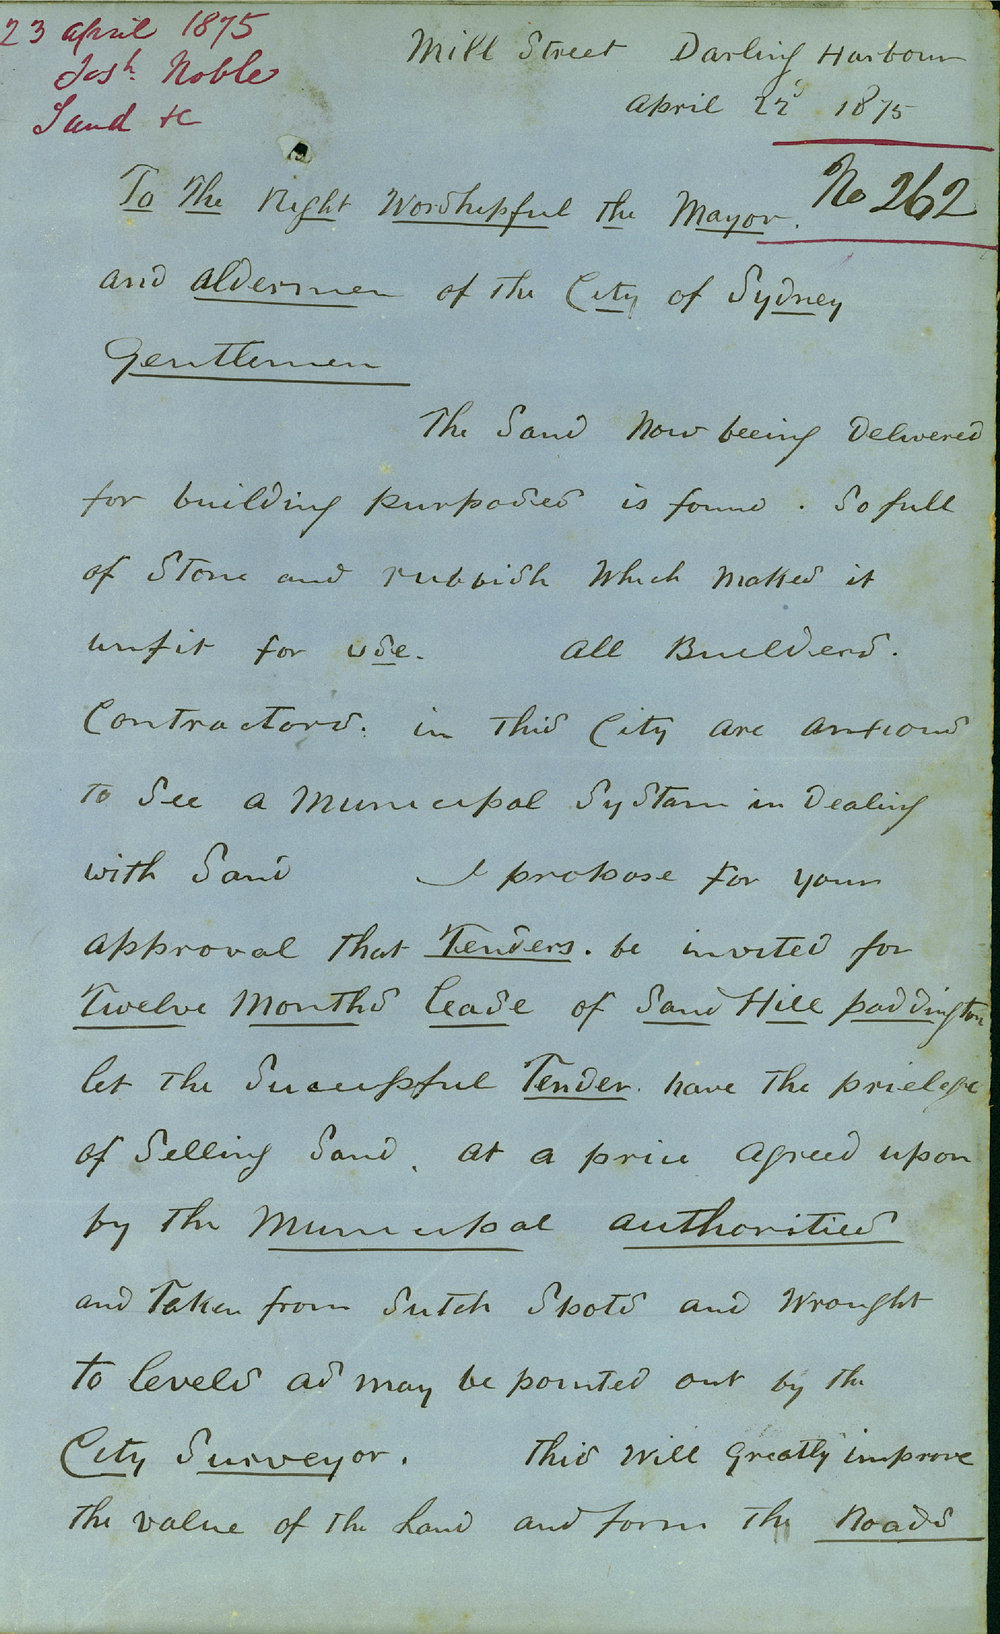 23 April 1875
Josh. Noble
Sand &c
Mill Street Darling Harbour
April 22d 1875
No 262
To The Right Worshipful the Mayor.
and aldermen of the City of Sydney
Gentlemen
The Sand Now beeing Delivered
for building purposes is found . So full
of Stone and rubbish Which makes it
unfit for use. All Builders.
Contractors. in this City are anxious
to See a Municipal System in Dealing
with Sand I propose for your
approval that Tenders. be invited for
Twelve Months lease of Sand Hill paddington
let the Sucessful Tender. have the prielege
of Selling Sand. at a price agreed upon
by the Municipal authorities
and Taken from Sutch Spots and Wrought
to levels as may be pointed out by the
City Surveyor. This Will Greatly improve
the value of the Land and form the Roads